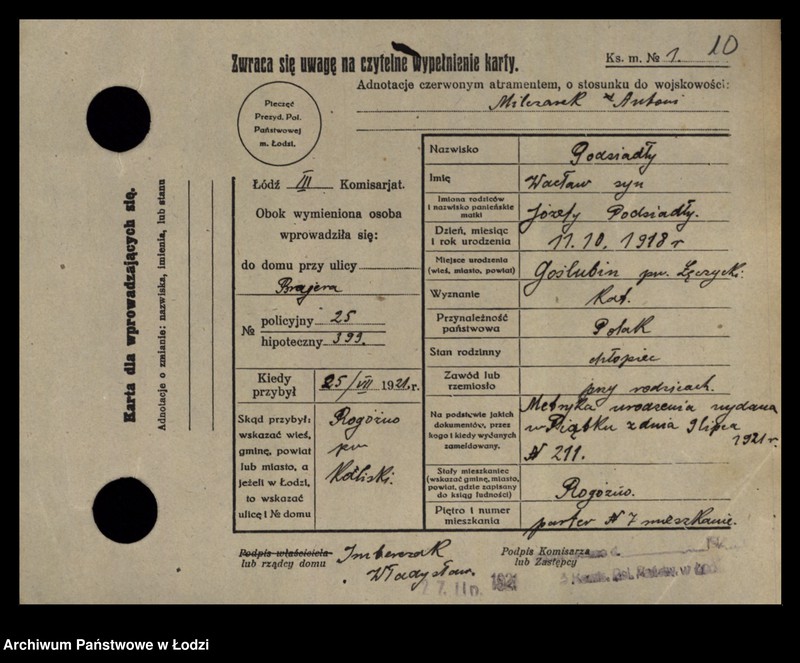 Zwraca się uwagę na czytelne wypełnienie karty.
Ks. m. № 1.
10
Adnotacje czerwonym atramentem, o stosunku do wojskowości:
Milczarek Antoni
Pieczęć
Prezyd. Pol.
Państwowej
m. Łodzi.
Karta dla wprowadzających się.
Adnotacje o zmianie: nazwiska, imienia, lub stanu
Łódź III Komisarjat.
Obok wymieniona osoba
wprowadziła się:
do domu przy ulicy
Brajera
№ policyjny 25
hipoteczny 399.
Kiedy przybył 25/VII 1921 r.
Skąd przybył:
wskazać wieś,
gminę, powiat
lub miasto, a
jeżeli w Łodzi,
to wskazać
ulicę i № domu
Rogóźno
pw
Nazwisko Podsiadły
Imię Wacław syn
Imiona rodziców
i nazwisko panieńskie
matki
Józefy Podsiadły.
Dzień, miesiąc
i rok urodzenia
11.10. 1918 r
Miejsce urodzenia
(wieś, miasto, powiat)
Goślubin pw. Łęczycki.
Wyznanie kat.
Przynależność
państwowa
Polak
Stan rodzinny chłopiec
Zawód lub
rzemiosło
przy rodzicach.
Na podstawie jakich
dokumentów, przez
kogo i kiedy wydanych
zameldowany.
Metryka urodzenia wydana
w Piątku z dnia 9 lipca
1921 r.
N 211.
Stały mieszkaniec
(wskazać gminę, miasto,
powiat, gdzie zapisany
do ksiąg ludności)
Rogóźno.
Piętro i numer
mieszkania
parter N 7 mieszkanie.
Podpis właściciela
lub rządcy domu
Imberczak
Władysław.
Podpis Komisarza
lub Zastępcy
27. lip. 1921
Archiwum Państwowe w Łodzi